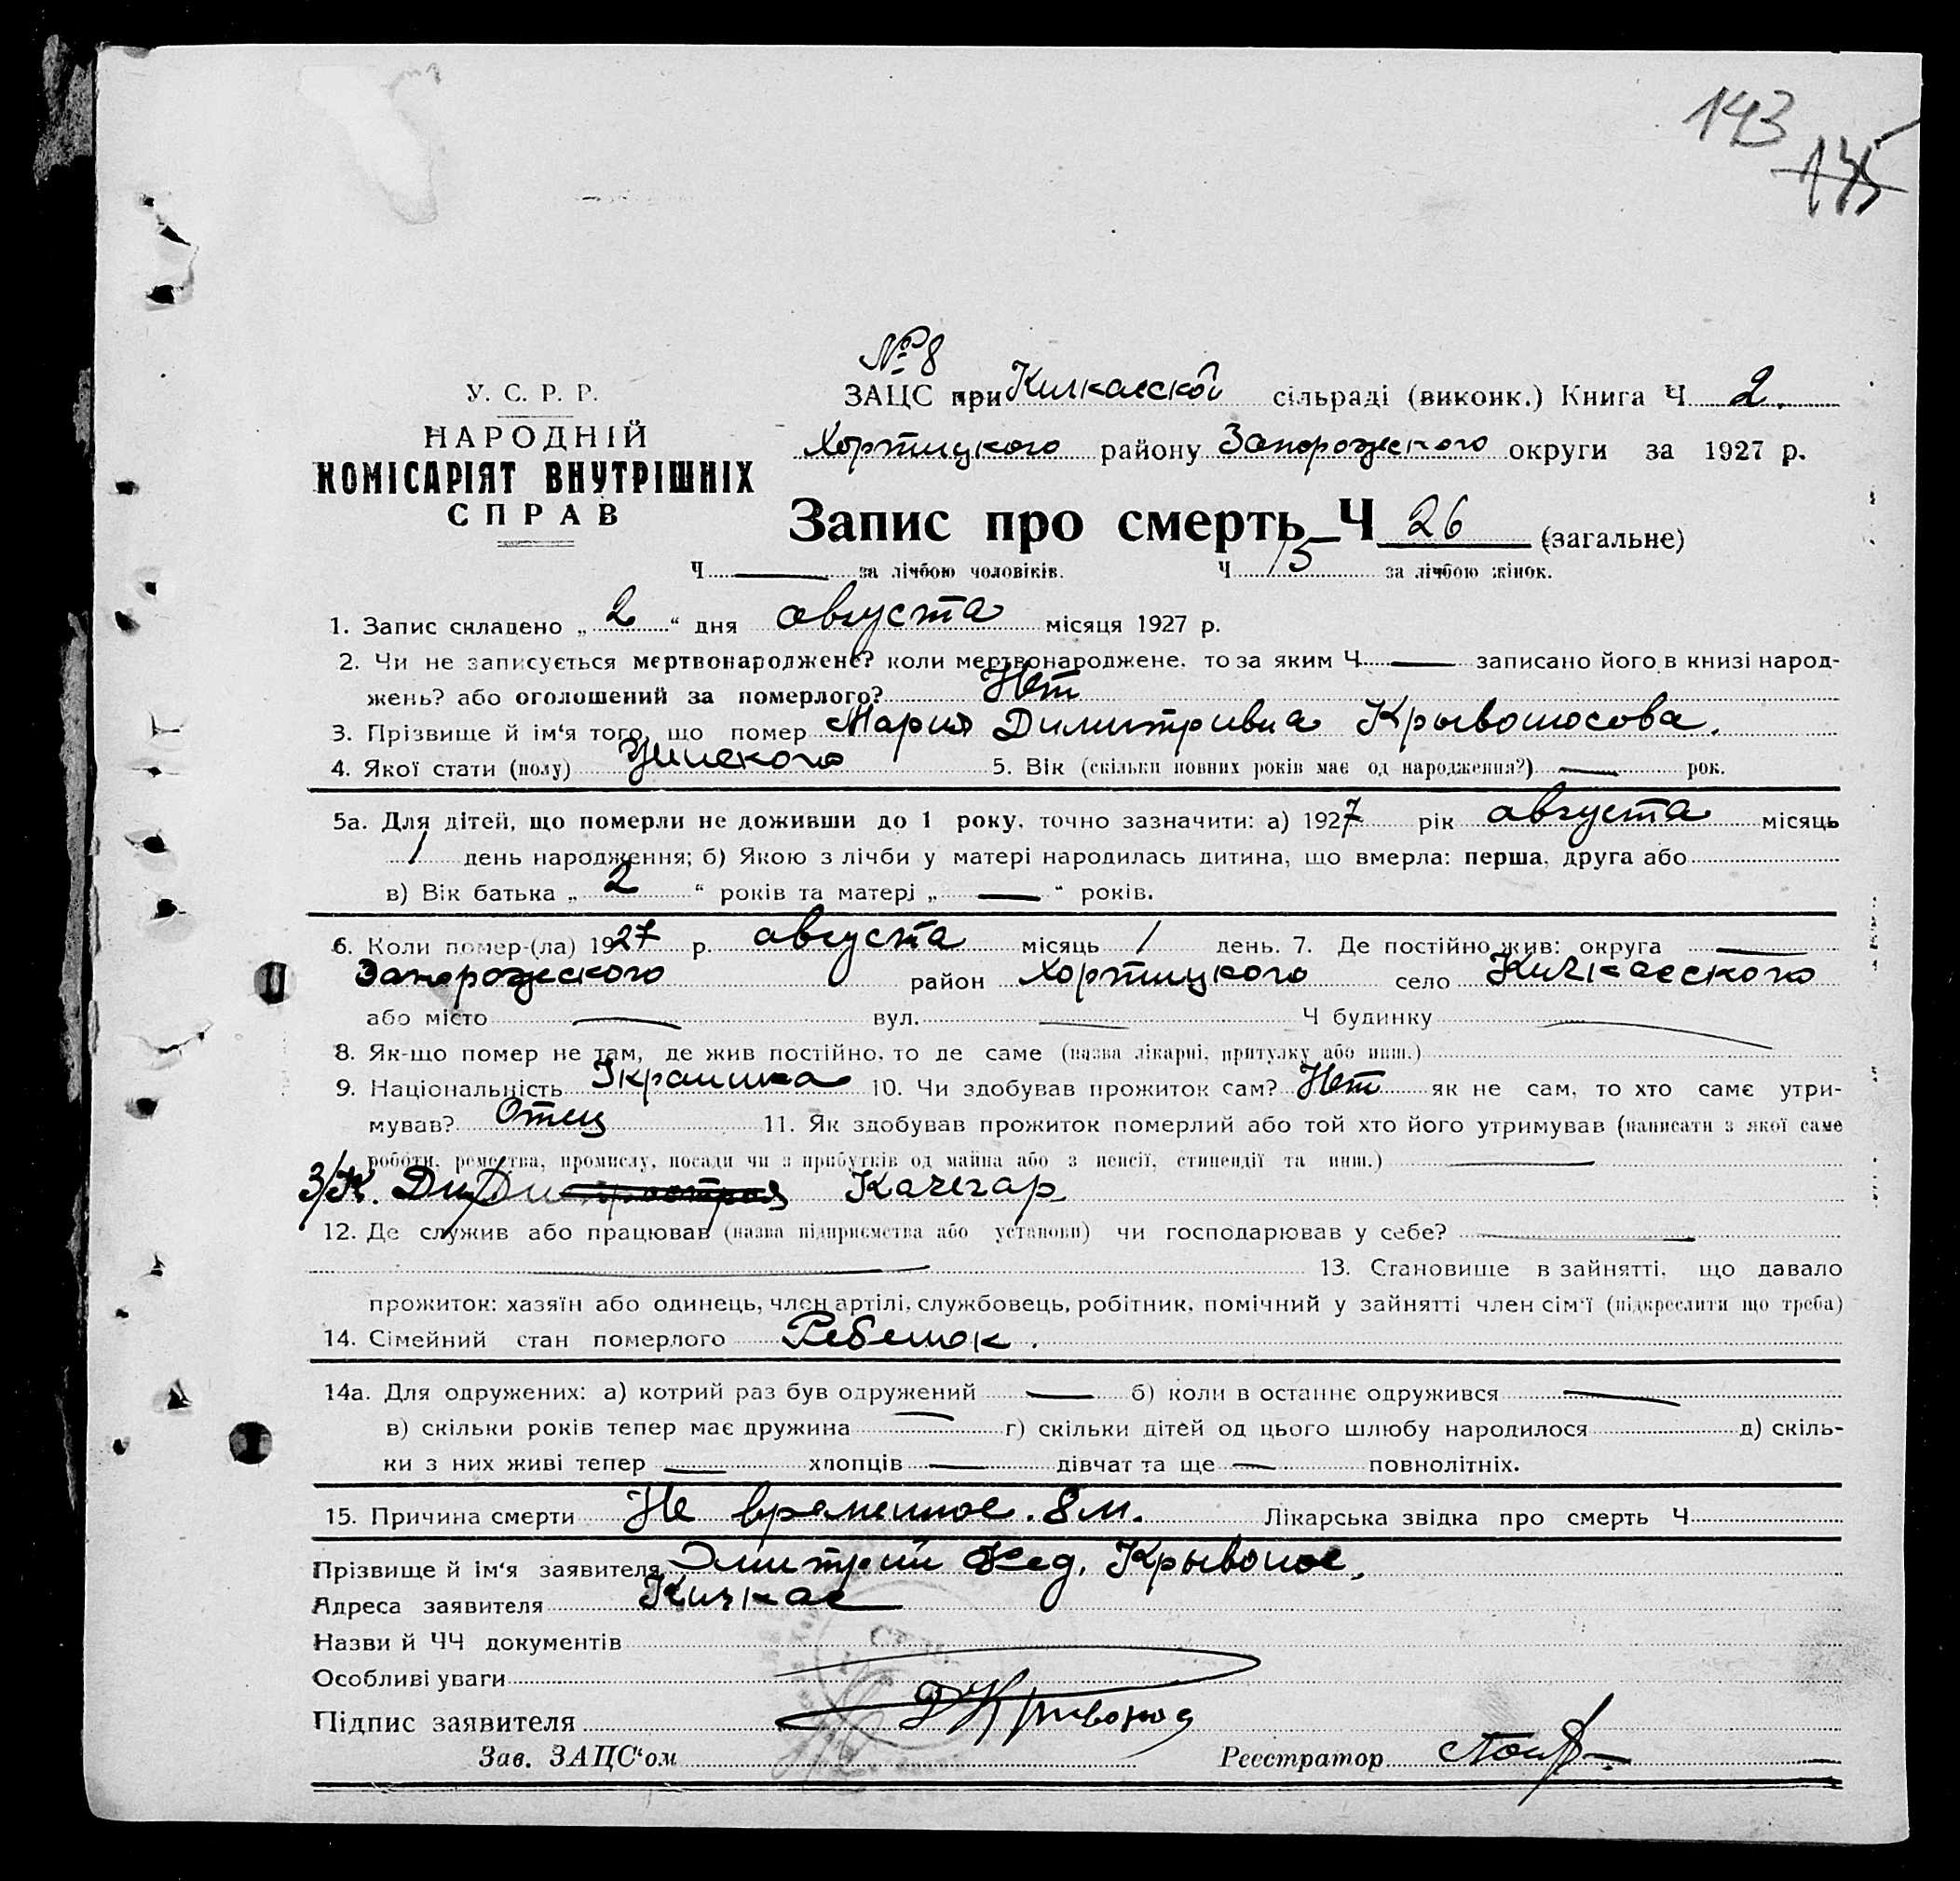 143
145
№ 8
У. С. Р. Р.
НАРОДНІЙ
КОМІСАРІЯТ ВНУТРІШНІХ
СПРАВ
ЗАЦС при Кичкасской сільраді (виконк.) Книга Ч 2.
Хортицкого району Запорожского округи за 1927 р.
Запис про смерть Ч 26 (загальне)
Ч — за лічбою чоловіків. Ч 15 за лічбою жінок.
1. Запис складено „ 2 “ дня августа місяця 1927 р.
2. Чи не записується мертвонароджене? коли мертвонароджене, то за яким Ч — записано його в книзі народ-
жень? або оголошений за померлого? Нет
3. Прізвище й ім'я того, що помер Мария Димитривна Крывоносова.
4. Якої стати (полу) Женского 5. Вік (скільки повних років має од народження?) — рок.
5а. Для дітей, що померли не доживши до 1 року, точно зазначити: а) 1927 рік августа місяць
1 день народження; б) Якою з лічби у матері народилась дитина, що вмерла: перша, друга або
в) Вік батька „ 2 “ років та матері „ — “ років.
6. Коли помер-(ла) 1927 р. августа місяць 1 день. 7. Де постійно жив: округа —
Запорожского район Хортицкого село Кичкасского
або місто — вул. — Ч будинку —
8. Як-що помер не там, де жив постійно, то де саме (назва лікарні, притулку або инш.)
9. Національність Украинка 10. Чи здобував прожиток сам? Нет як не сам, то хто саме утри-
мував? Отец 11. Як здобував прожиток померлий або той хто його утримував (написати з якої саме
роботи, ремества, промислу, посади чи з прибутків од майна або з пенсії, стипендії та инш.) —
З/К. Качегар
12. Де служив або працював (назва підприємства або установи) чи господарював у себе? —
— 13. Становище в зайнятті, що давало
прожиток: хазяїн або одинець, член артілі, службовець, робітник, помічний у зайнятті член сім'ї (підкреслити що треба)
14. Сімейний стан померлого Ребенок.
14а. Для одружених: а) котрий раз був одружений — б) коли в останнє одружився —
в) скільки років тепер має дружина — г) скільки дітей од цього шлюбу народилося д) скіль-
ки з них живі тепер — хлопців — дівчат та ще — повнолітніх.
15. Причина смерти Не временное. 8 м. Лікарська звідка про смерть Ч
Прізвище й ім'я заявителя Дмитрий Фед. Крывонос.
Адреса заявителя Кичкас
Назви й ЧЧ документів
Особливі уваги
Підпис заявителя Д Кривонос
Зав. ЗАЦС'ом Реєстратор